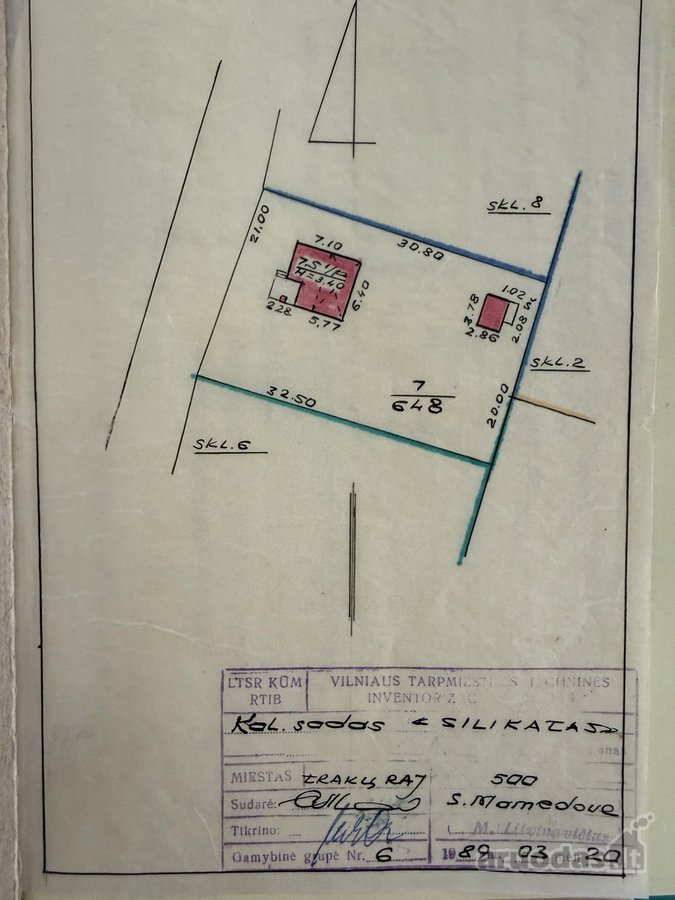 SKL. 8
21.00
30.80
7.10
7.S 1/
H=3.40
6.40
228
5,77
1.02
3.78
2.08
2.86
SKL. 2
7
648
20.00
32.50
SKL. 6
LTSR KŪM
RTIB
VILNIAUS TARPMIES
INVENTOR
Kol. sodas « SILIKATAS»
MIESTAS TRAKŲ RAJ 500
Sudarė: S. Mamedova
Tikrino:
Gamybinė grupė Nr. 6 1989 03 20
aruodas.lt